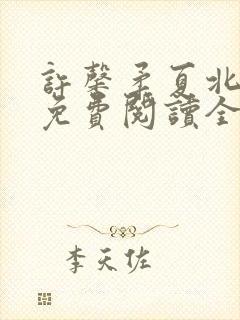 許馨矛夏北
免費閱讀全
李天佐